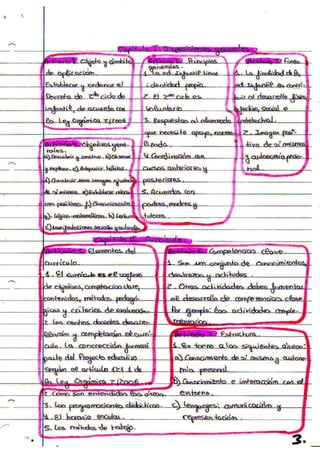 Capítulo I. Disposiciones generales.
Artículo 1. Objeto y ámbito
de aplicación.
Establecer y ordenar el
Decreto de 2º ciclo de
infantil, de acuerdo con
la Ley Orgánica 2/2006
Artículo 2. Principios
generales.
1. La ed. Infantil tiene
identidad propia.
2. El 2º ciclo es
voluntario
3. Respuestas al alumnado
que necesite apoyo,
4. Coordinación con
cursos anteriores y
posteriores.
5. Acuerdos con
padres, madres y
tutores.
Artículo 3. Fines
1. La finalidad de la
ed. Infantil es contri-
buir al desarrollo físico,
afectivo, social e
intelectual.
2. Imagen posi-
tiva de sí mismos
y autonomía perso-
nal.
Artículo 4. Objetivos gene-
rales.
a) Descubrir y construir. b) Observar
y explorar. c) Adquirir hábitos.
d) Construir una imagen ajustada
de sí mismos. e) Establecer relacio-
nes positivas. f) Comunicación
g). Lógico-matemáticas. h) Lectura
Capítulo II. Currículo.
Artículo 5. Elementos del
currículo.
1. El currículo es el conjunto
de objetivos, competencias clave,
contenidos, métodos pedagó-
gicos y criterios de evaluación.
2. Los centros docentes desarro-
llarán y completarán el currí-
culo. La concreción formará
parte del Proyecto educativo
según el artículo 121.1 de
la Ley Orgánica 2/2006
3. Las programaciones didácticas.
4. El horario escolar.
5. Los métodos de trabajo.
Artículo 6. Competencias clave.
1. Son un conjunto de conocimientos,
destrezas y actitudes.
2. Otras actividades deben fomentar
el desarrollo de competencias clave.
Por ejemplo: las actividades comple-
mentarias.
Artículo 7. Estructura.
1. En torno a las siguientes áreas:
a) Conocimiento de sí mismo y autono-
mía personal.
b) Conocimiento e interacción con el
entorno.
c) Lenguajes: comunicación y
representación.
3.